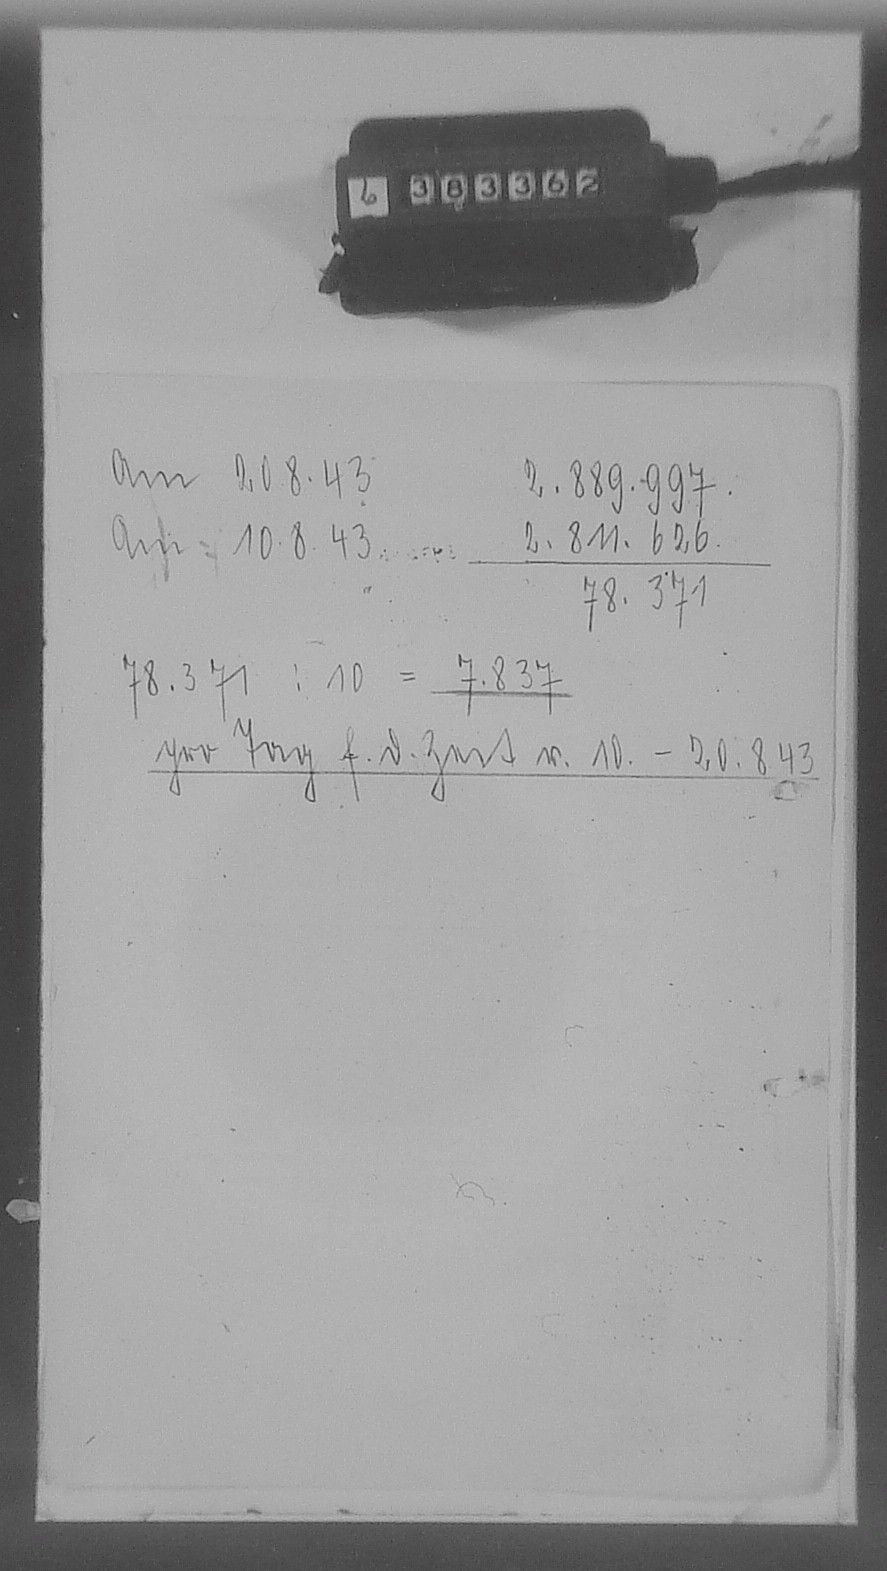 6 383362
Am 20.8.43 2.889.997.
Am 10.8.43 2.811.626.
78.371
78.371 : 10 = 7.837
pro Tag f. d. Zeit v. 10. – 20.8.43